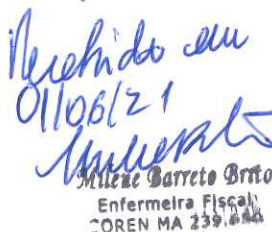 Recebido em
01/06/21
Milene Barreto Brito
Enfermeira Fiscal
COREN MA 239.